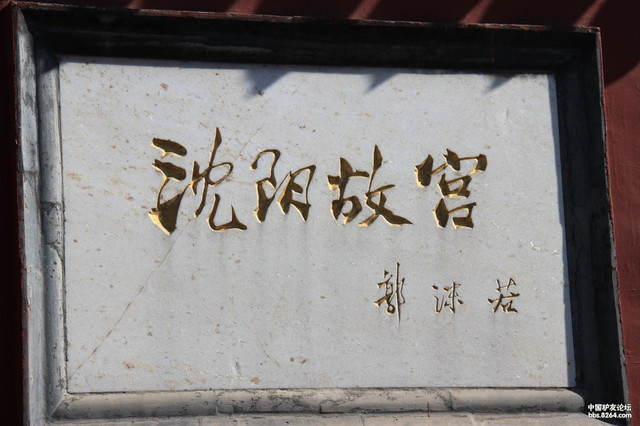 沈阳故宫
郭沫若
中国驴友论坛
bbs.8264.com